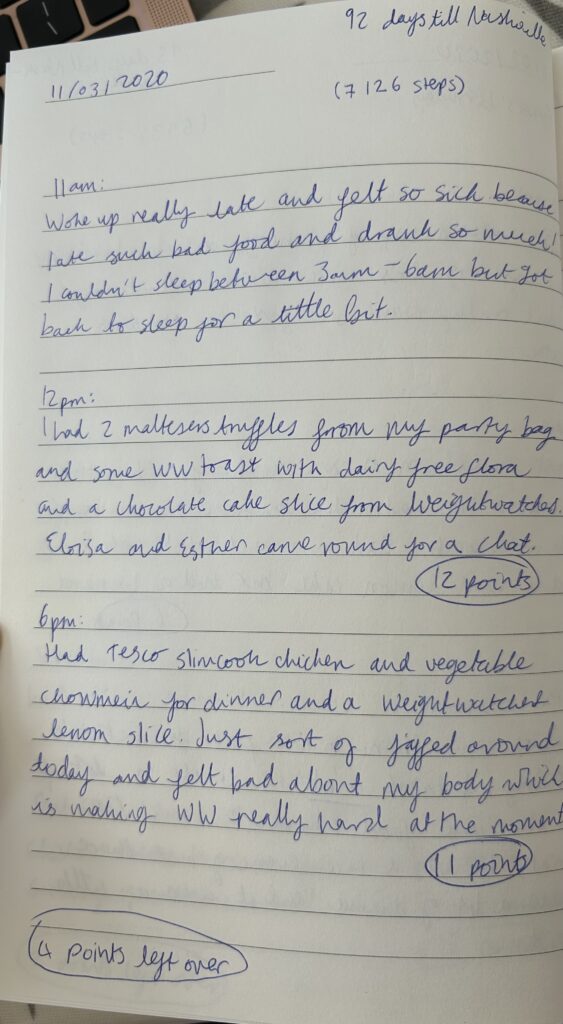 92 days till Nashville
11/03/2020
(7126 steps)
11am:
Woke up really late and felt so sick because
I ate such bad food and drank so much!
I couldn't sleep between 3am - 6am but got
back to sleep for a little bit.
12pm:
I had 2 maltesers truffles from my party bag
and some WW toast with dairy free flora
and a chocolate cake slice from Weightwatches.
Eloisa and Esther came round for a chat.
12 points
6pm:
Had Tesco slimcook chicken and vegetable
chowmein for dinner and a weightwatches
lemon slice. Just sort of faffed around
today and felt bad about my body which
is making WW really hard at the moment
11 points
4 points left over